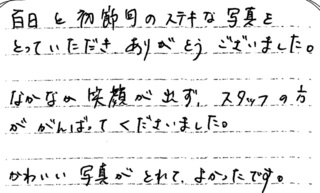 百日と初節目のステキな写真を
とっていただき ありがとう ございました。
なかなか 笑顔が出ず、スタッフの方
が がんばって くださいました。
かわいい 写真が とれて、よかったです。